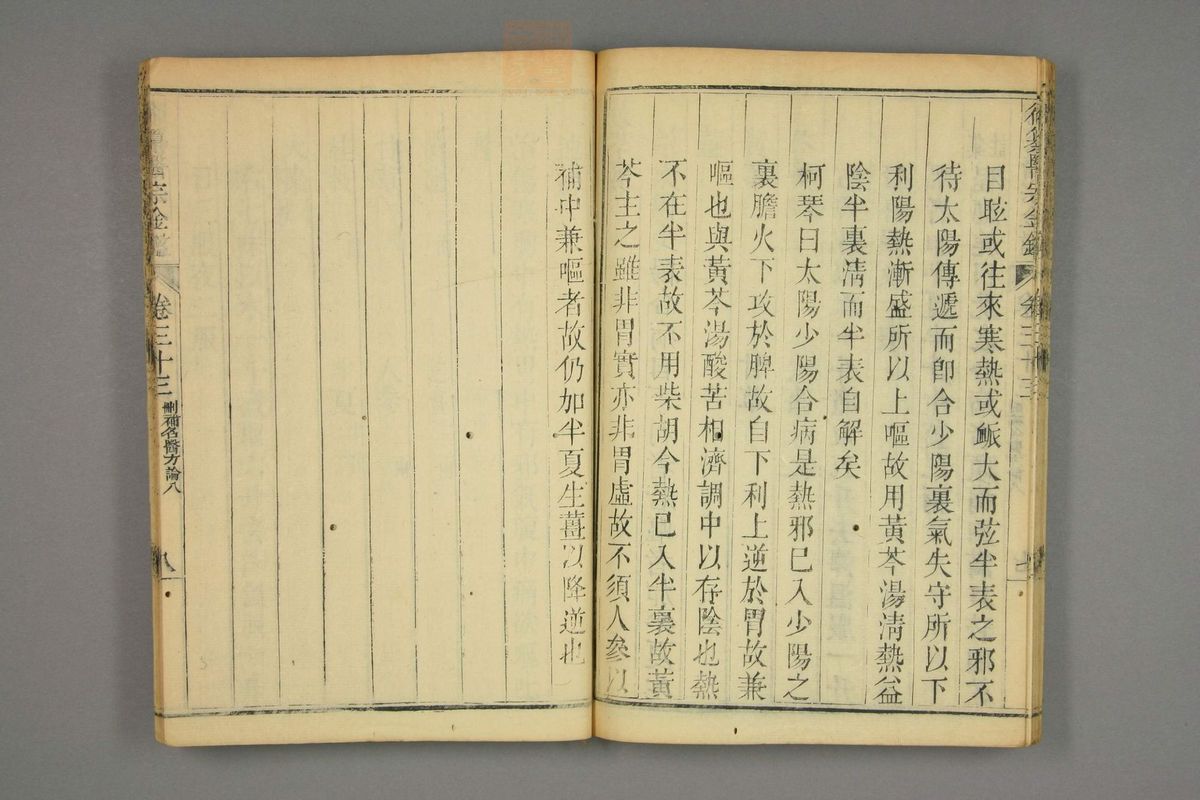 御纂醫宗金鑑 卷三十三 七
目眩或往來寒熱或脈大而弦半表之邪不
待太陽傳遞而卽合少陽裏氣失守所以下
利陽熱漸盛所以上嘔故用黃芩湯淸熱益
陰半裏淸而半表自解矣
柯琴曰太陽少陽合病是熱邪已入少陽之
裏膽火下攻於脾故自下利上逆於胃故兼
嘔也與黃芩湯酸苦相濟調中以存陰也熱
不在半表故不用柴胡今熱已入半裏故黃
芩主之雖非胃實亦非胃虛故不須人參以
補中兼嘔者故仍加半夏生薑以降逆也
醫宗金鑑 卷三十三 刪補名醫方論八 八